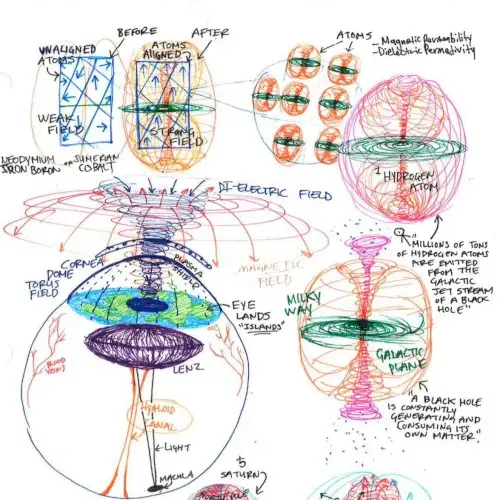 BEFORE
AFTER
UNALIGNED
ATOMS
ATOMS
ALIGNED
WEAK
FIELD
STRONG
FIELD
NEODYMIUM
IRON BORON or SUMERIAN
COBALT
ATOMS
- Magnetic Permeability
- Dielectric Permativity
1 HYDROGEN
ATOM
DI-ELECTRIC FIELD
MAGNETIC
FIELD
PLASMA
SHIELD
CORNEA
DOME
TORUS
FIELD
EYE
LANDS
"ISLANDS"
LENZ
BLOOD
VEINS
HYALOID
CANAL
LIGHT
MACULA
"MILLIONS OF TONS
OF HYDROGEN ATOMS
ARE EMITTED
FROM THE
GALACTIC
JET STREAM
OF A BLACK
HOLE"
MILKY
WAY
GALACTIC
PLANE
"A BLACK HOLE
IS CONSTANTLY
GENERATING AND
CONSUMING ITS
OWN MATTER"
♄
SATURN
NORTH POLE